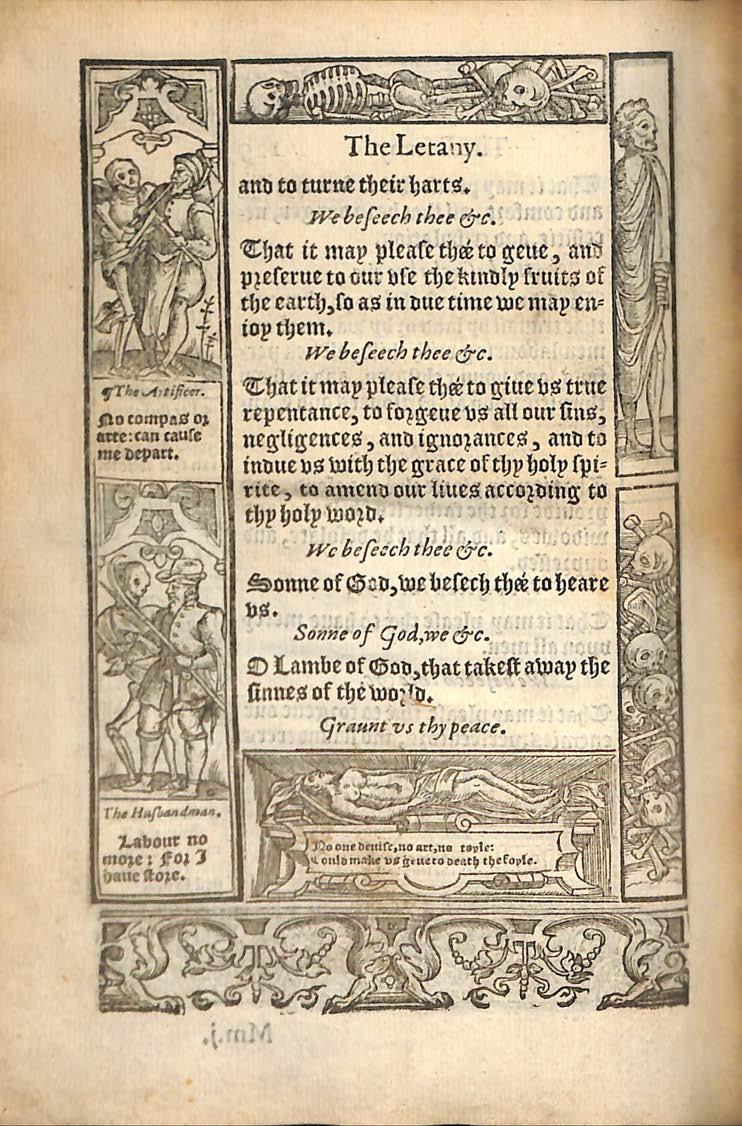 The Letany.
and to turne their harts.
We beseech thee &c.
That it may please thée to geue, and
preserue to our vse the kindly fruits of
the earth, so as in due time we may en-
ioy them.
We beseech thee &c.
That it may please thée to giue vs true
repentance, to forgeue vs all our sins,
negligences, and ignorances, and to
indue vs with the grace of thy holy spi-
rite, to amend our liues according to
thy holy word.
We beseech thee &c.
Sonne of God, we besech thée to heare
vs.
Sonne of God, we &c.
O Lambe of God, that takest away the
sinnes of the world.
Graunt vs thy peace.
¶The Artificer.
No compas or
arte: can cause
me depart.
The Husbandman.
Labour no
more: For I
haue store.
No one deuise, no art, no toyle:
Could make vs geue to death the foyle.
Mm.j.